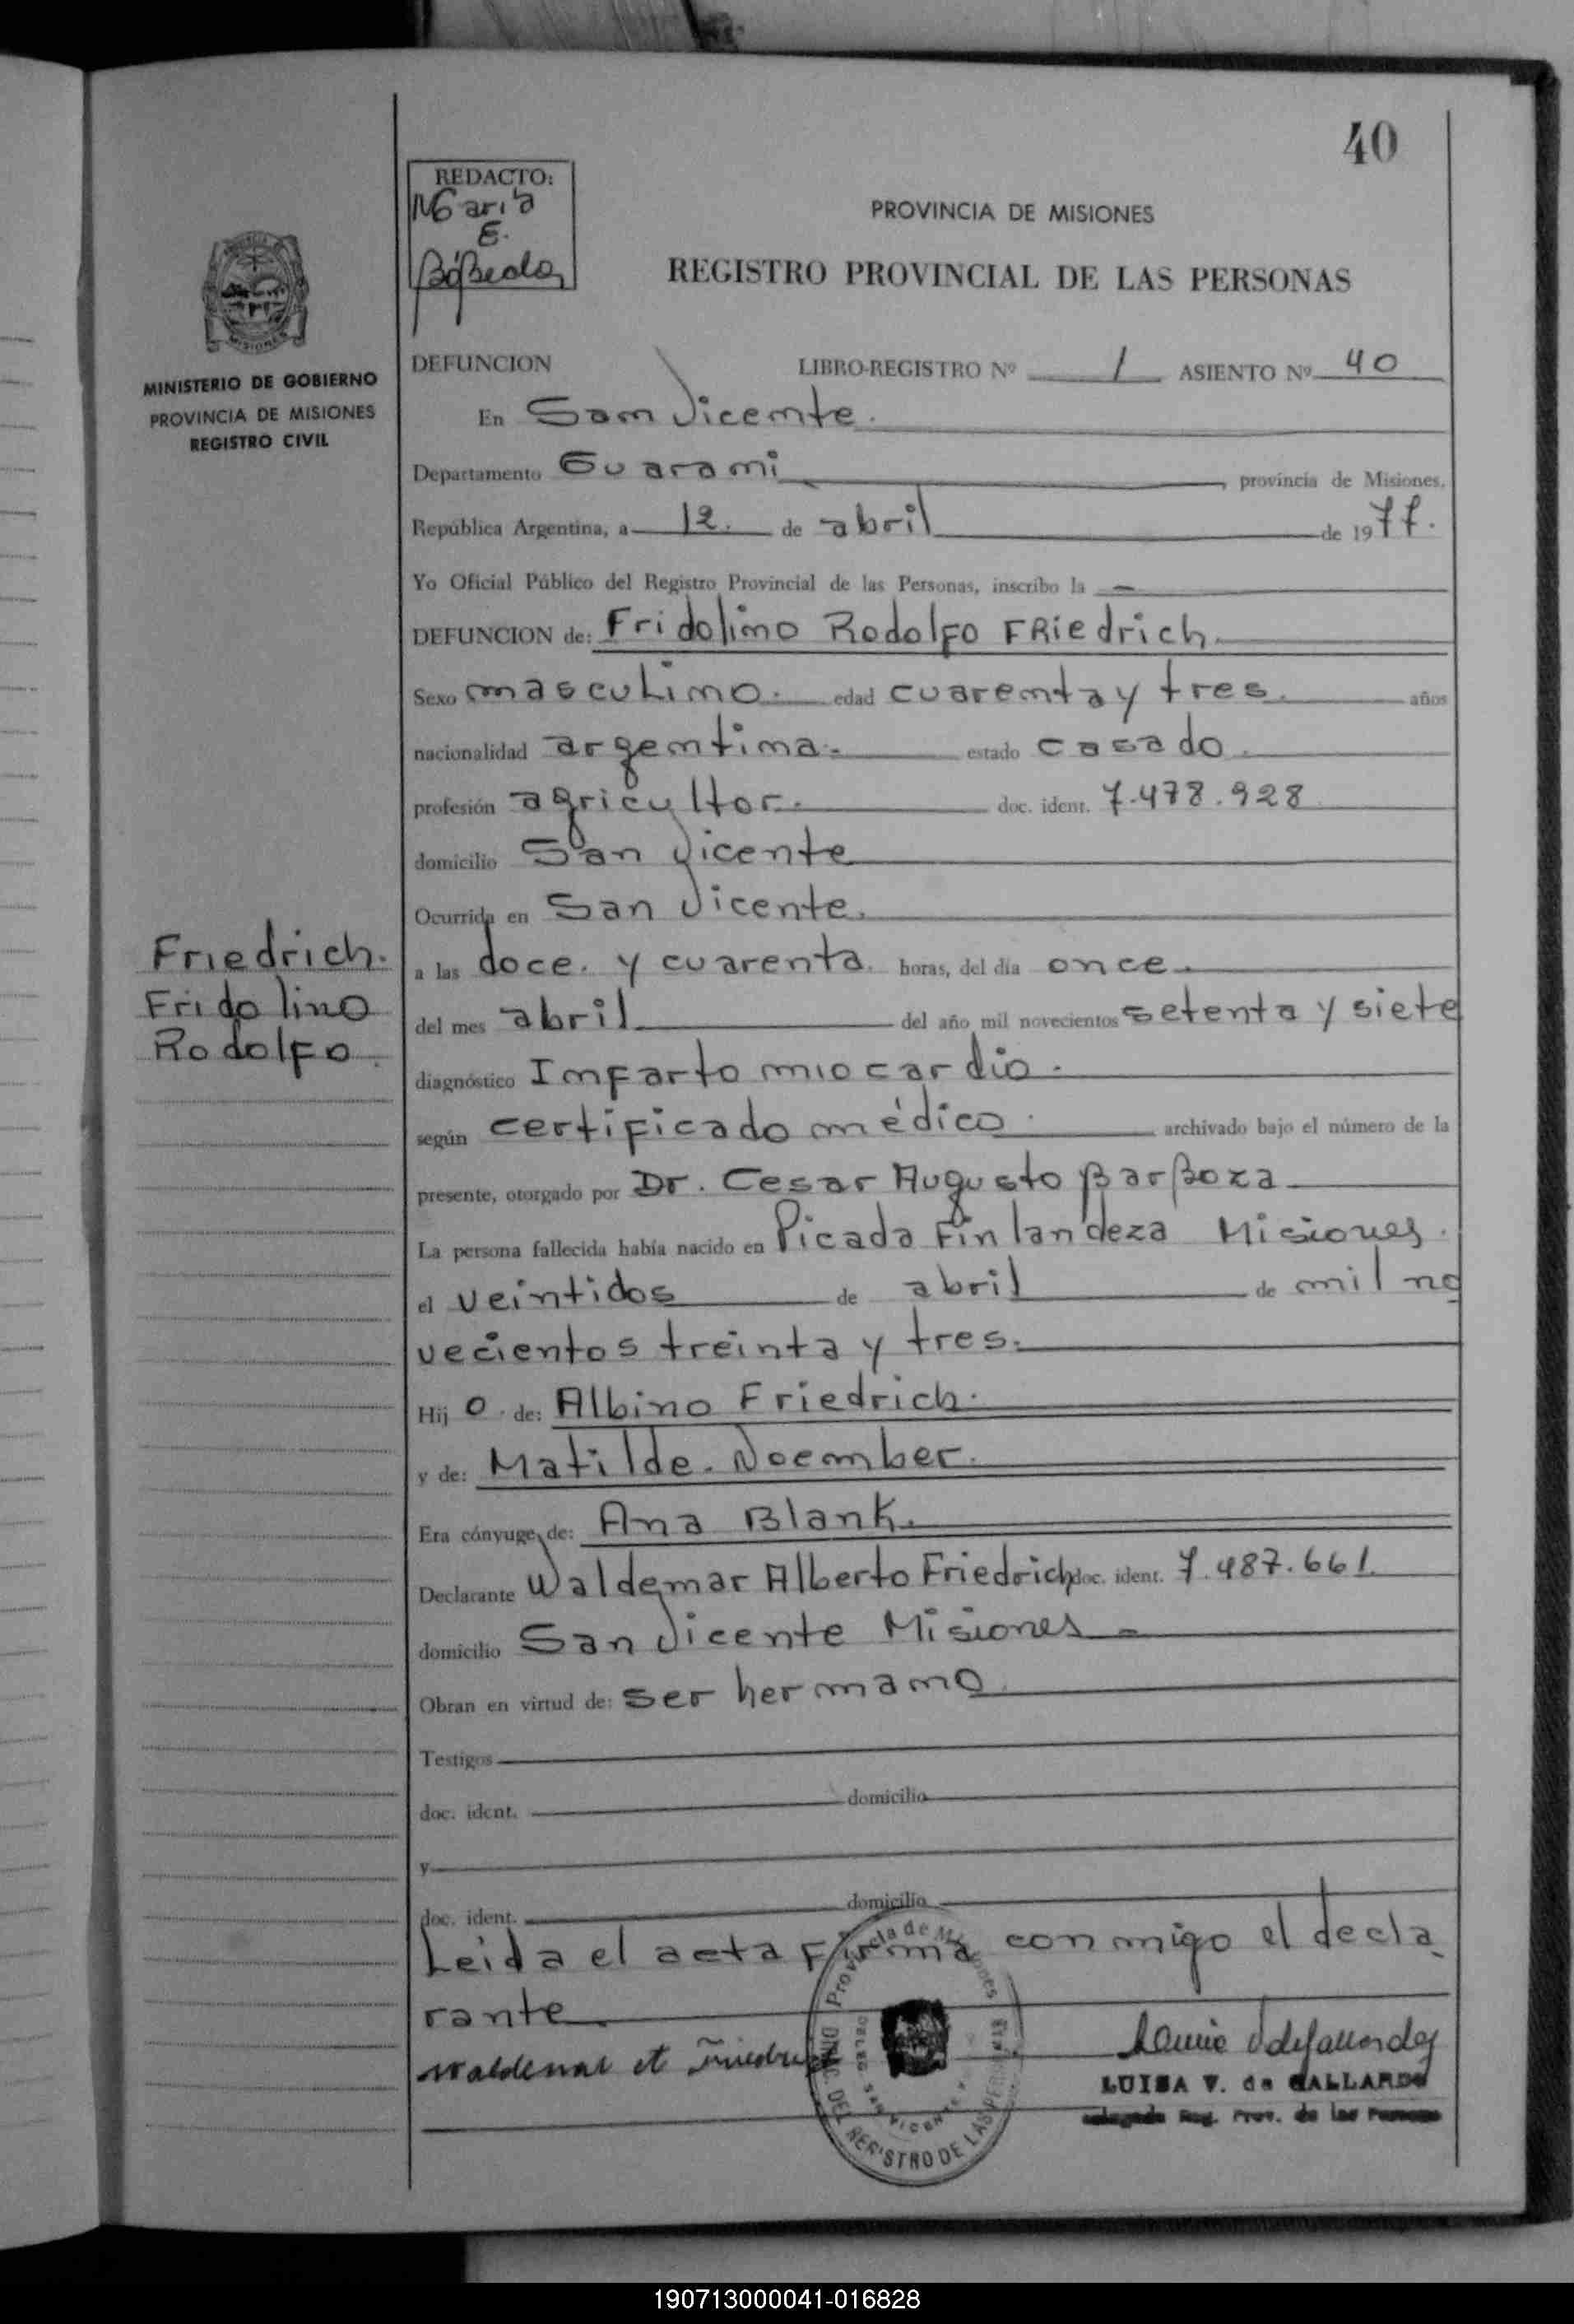 40
REDACTO:
Maria
E.
PROVINCIA DE MISIONES
REGISTRO PROVINCIAL DE LAS PERSONAS
MINISTERIO DE GOBIERNO
PROVINCIA DE MISIONES
REGISTRO CIVIL
DEFUNCION LIBRO-REGISTRO Nº 1 ASIENTO Nº 40
En San Vicente.
Departamento Guarani, provincia de Misiones.
República Argentina, a 12. de abril de 1977.
Yo Oficial Público del Registro Provincial de las Personas, inscribo la —
DEFUNCION de: Fridolino Rodolfo FRiedrich.
Sexo masculino. edad cuarenta y tres. años
nacionalidad argentina. estado casado.
profesión agricultor. doc. ident. 7.478.928
domicilio San Vicente
Ocurrida en San Vicente.
a las doce. y cuarenta. horas, del día once.
del mes abril del año mil novecientos setenta y siete
diagnóstico Imfarto miocardio.
según certificado médico. archivado bajo el número de la
presente, otorgado por Dr. Cesar Augusto Barboza
La persona fallecida había nacido en Picada Finlandeza Misiones.
el veintidos de abril de mil no
vecientos treinta y tres.
Hij o. de: Albino Friedrich.
y de: Matilde. Noember.
Era cónyuge de: Ana Blank.
Declarante Waldemar Alberto Friedrich doc. ident. 7.487.661.
domicilio San Vicente Misiones
Obran en virtud de: ser hermano
Testigos
doc. ident. domicilio
y
doc. ident. domicilio
Leida el acta firma conmigo el decla
rante.
Friedrich.
Fridolino
Rodolfo.
Provincia de Misiones
DIREC. DEL REGISTRO DE LAS PERSONAS
DELEG. SAN VICENTE
LUISA V. de GALLARDO
Delegada Reg. Prov. de las Personas
190713000041-016828